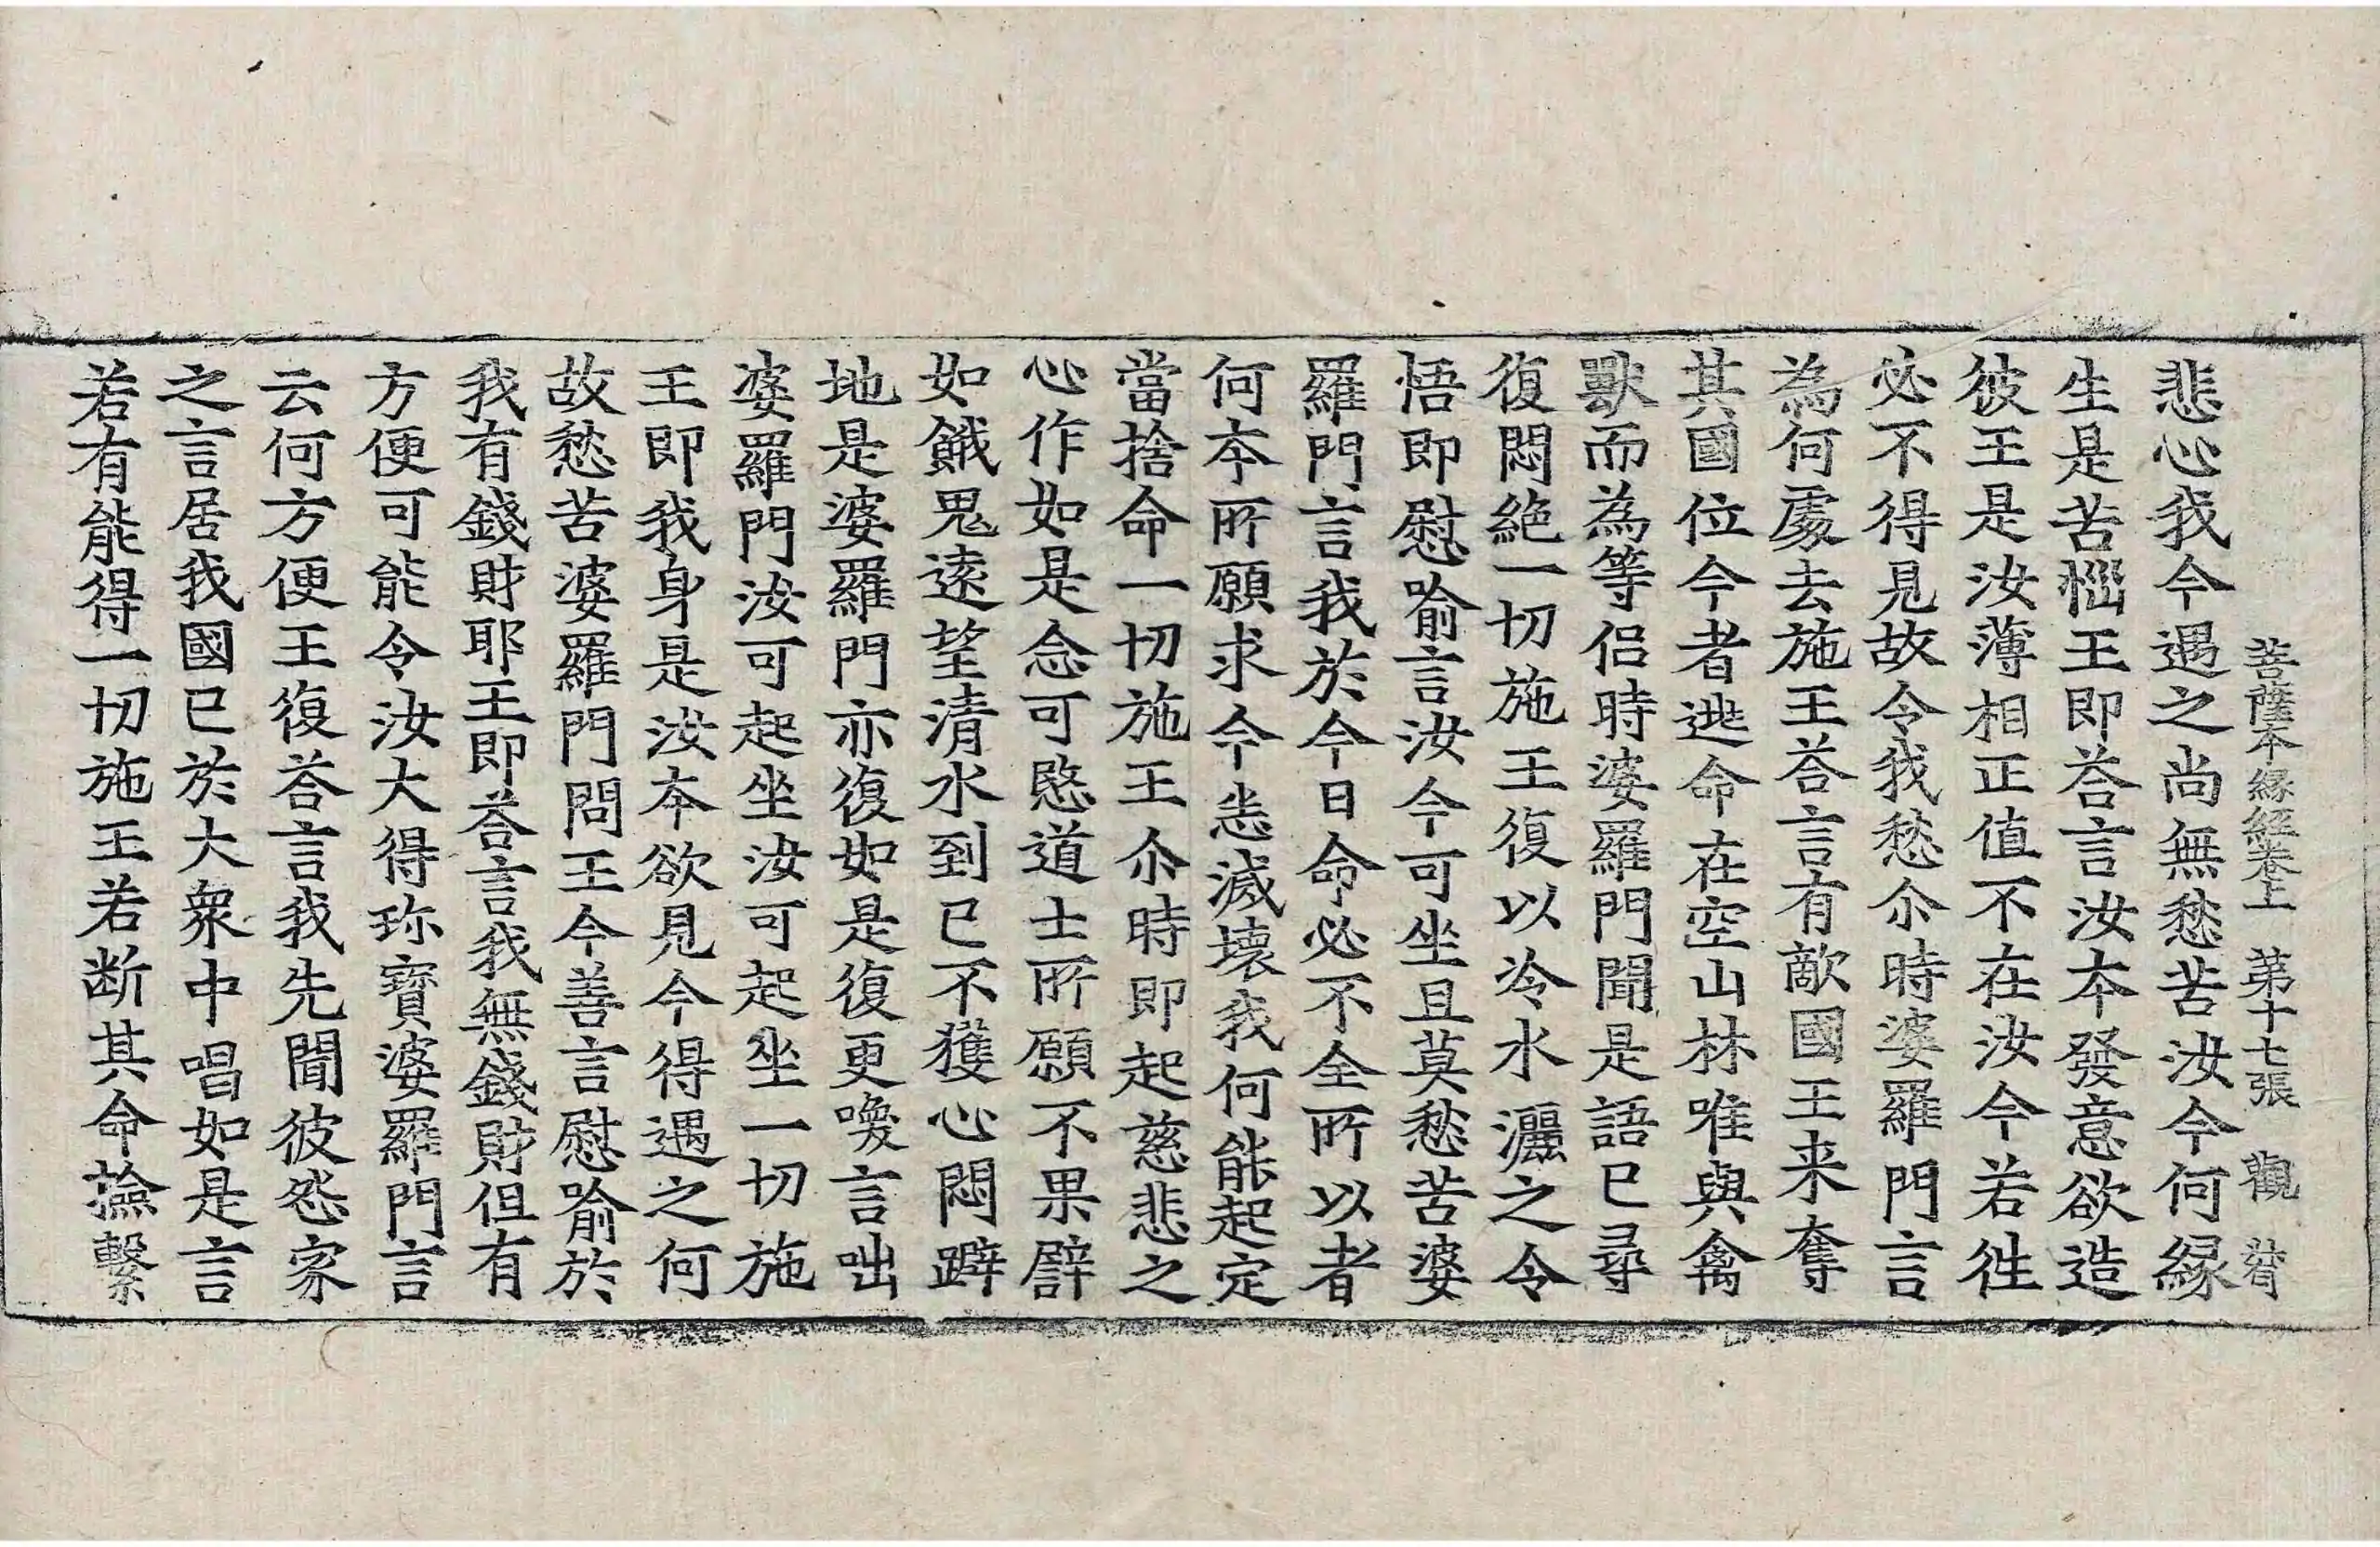 菩薩本縁經卷上 第十七張 觀
悲心我今遇之尚無愁苦汝今何縁
生是苦惱王即荅言汝本發意欲造
彼王是汝薄相正值不在汝今若徃
必不得見故令我愁尒時婆羅門言
為何處去施王荅言有敵國王来奪
其國位今者逃命在空山林唯與禽
獸而為等侶時婆羅門聞是語已尋
復悶絶一切施王復以冷水灑之令
悟即慰喻言汝今可坐且莫愁苦婆
羅門言我於今日命必不全所以者
何本所願求今恙滅壞我何能起定
當捨命一切施王尒時即起慈悲之
心作如是念可愍道士所願不果譬
如餓鬼逺望清水到已不獲心悶躃
地是婆羅門亦復如是復更喚言咄
婆羅門汝可起坐汝可起坐一切施
王即我身是汝本欲見今得遇之何
故愁苦婆羅門問王今善言慰喻於
我有錢財耶王即荅言我無錢財但有
方便可能令汝大得珎寶婆羅門言
云何方便王復荅言我先聞彼怨家
之言居我國已於大衆中唱如是言
若有能得一切施王若断其命撿繋